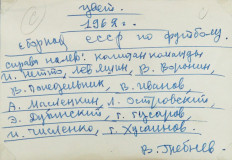 цвет.
1962 г.
сборная СССР по футболу.
справа налево: капитан команды
И. Нетто, Лев Яшин, В. Воронин,
В. Понедельник, В. Иванов,
А. Масленкин, Л. Островский,
Э. Дубинский, Г. Гусаров,
И. Численко, Г. Хусаинов.
В. Гребнев